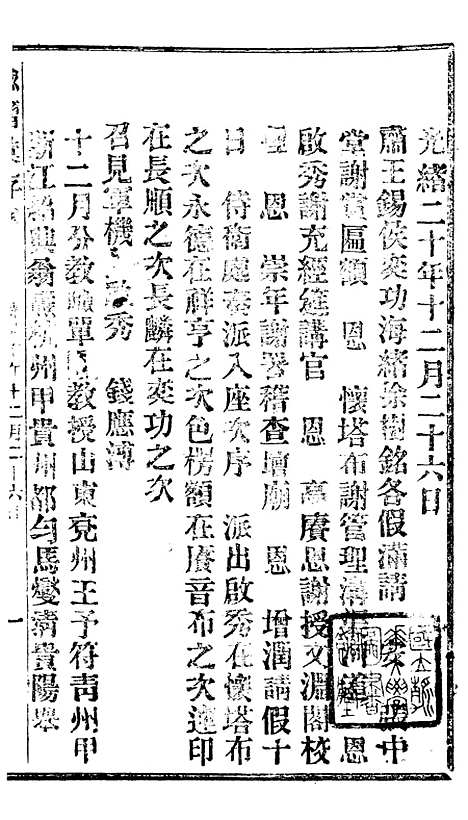 光緒二十年十二月二十六日
肅王錫佚奕功海緒徐樹銘各假滿請 安 中
堂謝賞匾額 恩 懷塔布謝管理溝 河道 恩
啟秀謝充經筵講官 恩 賡恩謝授文淵閣校
恩 崇年謝署稽查壇廟 恩 增潤請假十
日 侍衛處奏派入座次序 派出啟秀在懷塔布
之次永德在祥亨之次色楞額在賡音布之次達印
在長順之次長麟在奕功之次
召見軍機 啟秀 錢應溥
十二月分教職單 教授山東兗州王予符青州甲
浙江紹興翁燾杭州甲貴州都勻馬燮清貴陽舉
十二月二十六日
一
國立北